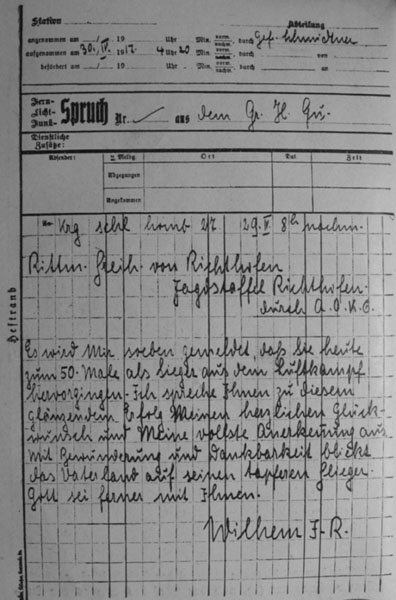 Station
Abteilung
angenommen am / 19 Uhr Min. vorm. nachm. durch Gef.
aufgenommen am 30. IV. 1917. 4 Uhr 20 Min. vorm. nachm. durch von
befördert am / 19 Uhr Min. vorm. nachm. durch an
Fern-
Licht-
Funk-
Spruch Nr. aus dem Gr. H. Qu.
Dienstliche
Zusätze:
Absender: Meldg. Ort Dat. Zeit
Abgegangen
Angekommen
Krg 2/7 29. IV. 8h nachm.
Rittm. Freih. von Richthofen
Jagdstaffel Richthofen.
durch A.O.K.6.
Es wird Mir soeben gemeldet, daß Sie heute
zum 50. Male als Sieger aus dem Luftkampf
hervorgingen. Ich spreche Ihnen zu diesem
glänzendem Erfolg Meinen herzlichen Glück-
wunsch und Meine vollste Anerkennung aus
Mit Bewunderung und Dankbarkeit blickt
das Vaterland auf seinen tapferen Flieger.
Gott sei ferner mit Ihnen.
Wilhelm I. R.
Heftrand